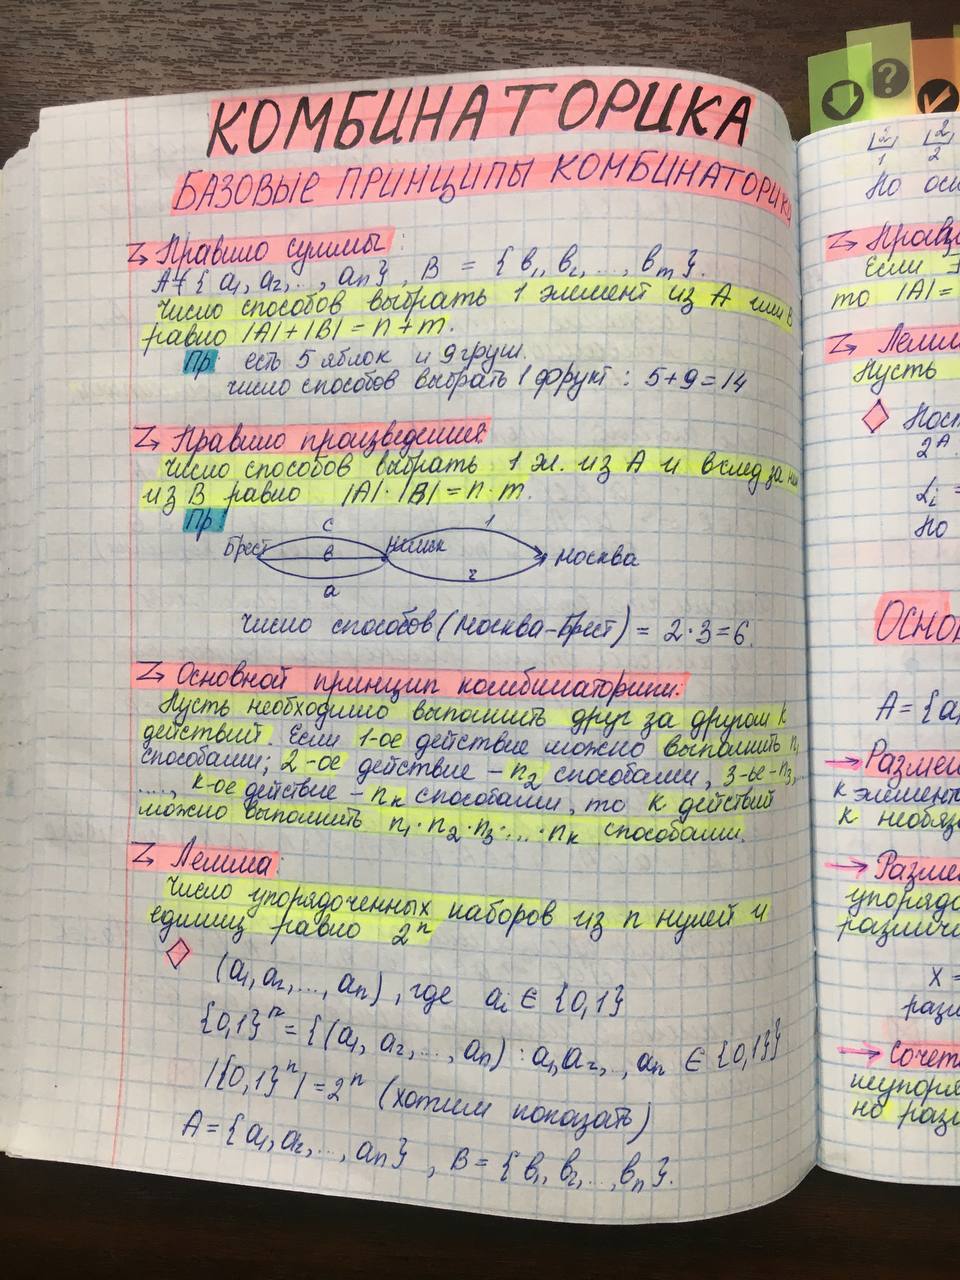 КОМБИНАТОРИКА
БАЗОВЫЕ ПРИНЦИПЫ КОМБИНАТОРИК
Правило суммы:
A = { a₁, a₂, ..., aₙ }, B = { в₁, в₂, ..., вₘ }.
Число способов выбрать 1 элемент из A или B
равно |A|+|B| = n+m.
Пр: есть 5 яблок и 9 груш.
число способов выбрать 1 фрукт : 5+9=14
Правило произведения:
Число способов выбрать 1 эл. из A и вслед за ним
из B равно |A|·|B| = n·m.
Пр:
c 1
Брест в Минск Москва
a 2
Число способов (Москва-Брест) = 2·3=6.
Основной принцип комбинаторики:
Пусть необходимо выполнить друг за другом k
действий. Если 1-ое действие можно выполнить n₁
способами; 2-ое действие – n₂ способами, 3-ье – n₃, ...
...., k-ое действие – nₖ способами, то k действий
можно выполнить n₁·n₂·n₃·...·nₖ способами.
Лемма:
Число упорядоченных наборов из n нулей и
единиц равно 2ⁿ
(a₁, a₂, ..., aₙ), где aᵢ ∈ {0,1}
{0,1}ⁿ = {(a₁, a₂, ..., aₙ) : a₁, a₂, .., aₙ ∈ {0,1}}
|{0,1}ⁿ| = 2ⁿ (хотим показать)
A = { a₁, a₂, ..., aₙ }, B = { в₁, в₂, ..., вₙ }.
?
1 2
Но осн
Прав
Если
то |A| =
Лемм
Пусть
Пост
2ᴬ
Lᵢ =
Но
ОСНО
A = {a
Разме
k элемент
k необяз
Разме
упорядо
различ
X =
разл
Сочет
неупоря
но разл